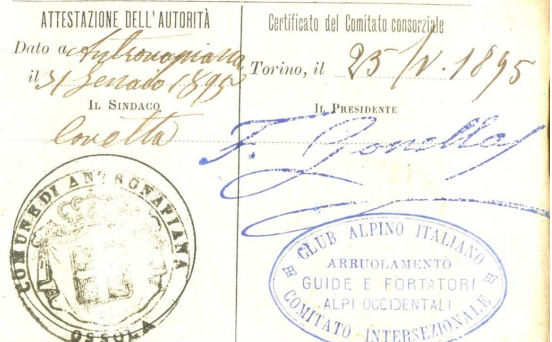 ATTESTAZIONE DELL'AUTORITÀ
Dato a Antronapiana
il 31 Gennaio 1895
IL SINDACO
COMUNE DI ANTRONAPIANA
OSSOLA
Certificato del Comitato consorziale
Torino, il 25/V. 1895
IL PRESIDENTE
F. Gonella
CLUB ALPINO ITALIANO
ARRUOLAMENTO
GUIDE E PORTATORI
ALPI OCCIDENTALI
COMITATO INTERSEZIONALE